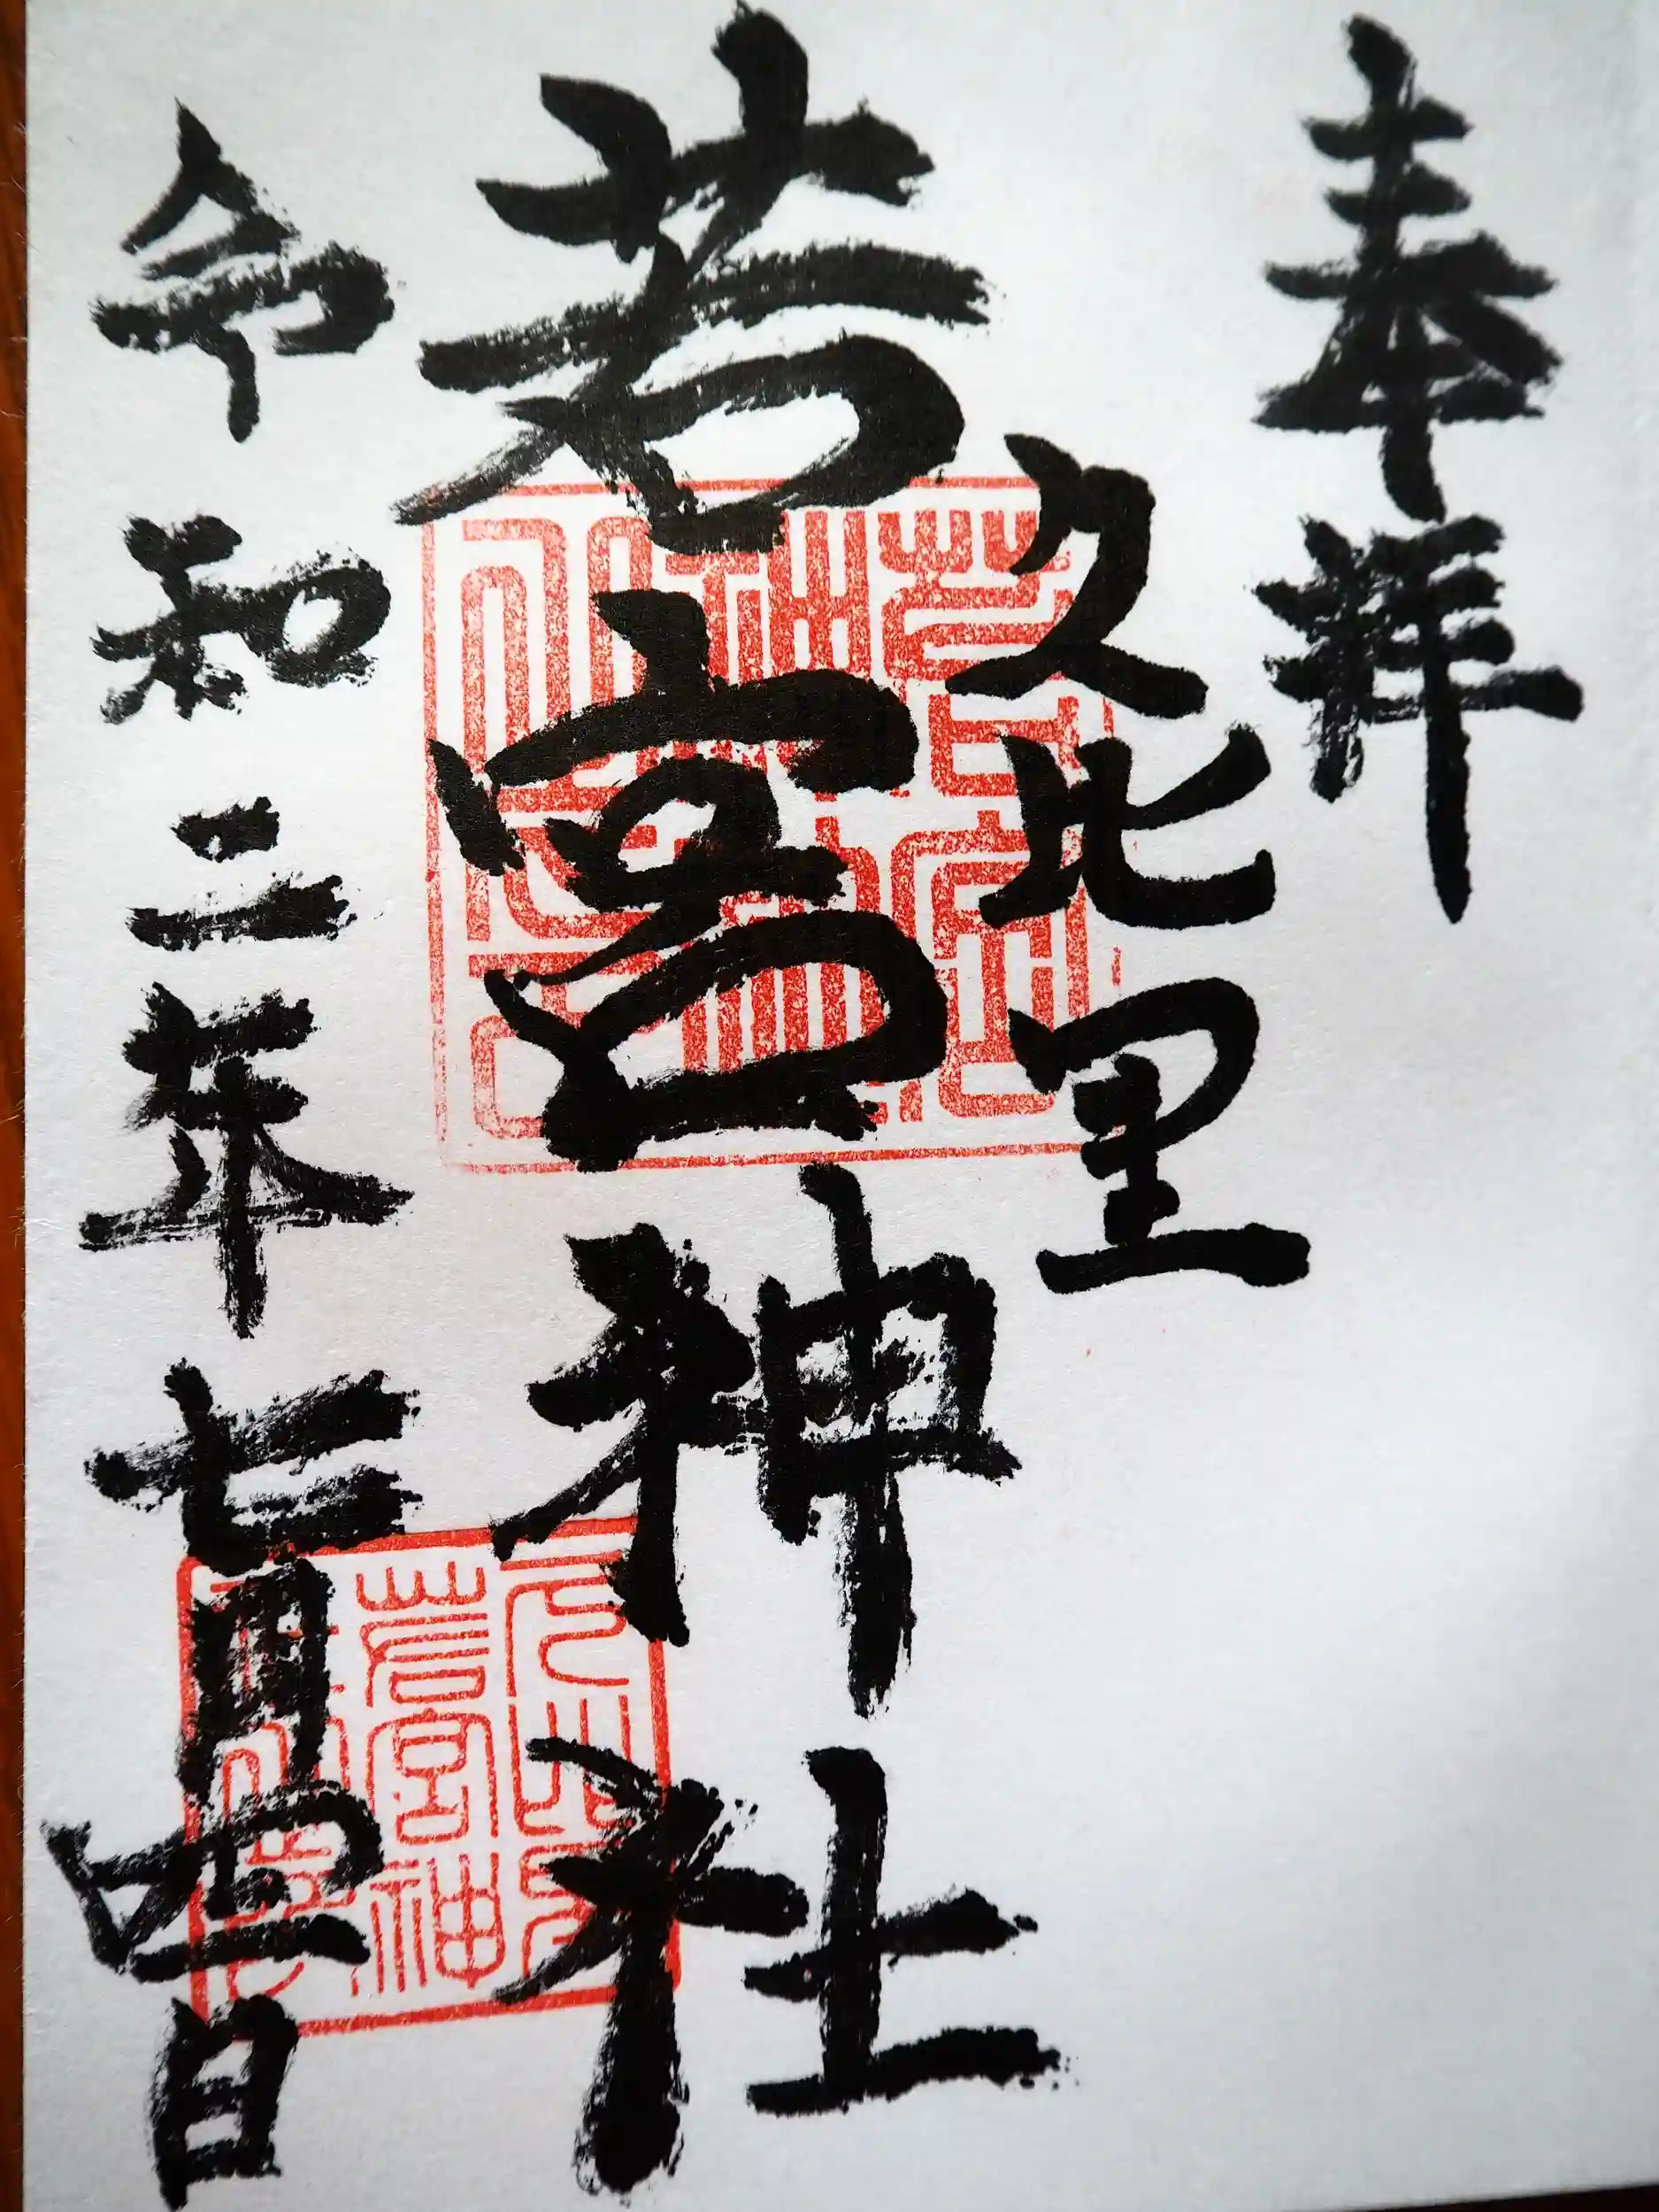 奉拝
久比里
若宮神社
令和二年七月四日